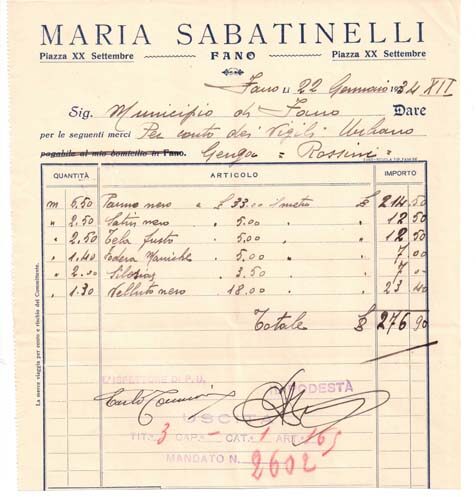 MARIA SABATINELLI
Piazza XX Settembre FANO Piazza XX Settembre
Fano LI 22 Gennaio 1934 XII
Sig. Municipio di Fano Dare
per le seguenti merci Per conto dei Vigili Urbano
pagabile al mio domicilio in Fano. Genga = Rossini =
QUANTITÀ ARTICOLO IMPORTO
m 5.50 Panno nero £ 33.00 l metro £ 214.50
" 2.50 Satin nero " 5.00 " 12 50
" 2.50 Tela fusto " 5.00 " 12 50
" 1.40 Fodera Maniche " 5.00 " 7.00
" 2.00 " 3.50 " 7 "
" 1.30 Velluto nero " 18.00 " 23 40
Totale £ 276 90
La merce viaggia per conto e rischio del Committente.
L'ISPETTORE DI P.U. IL PODESTÀ
Carlo
USCITA
TIT. 3 CAP. - CAT. 1 ART. 165
MANDATO N. 2602